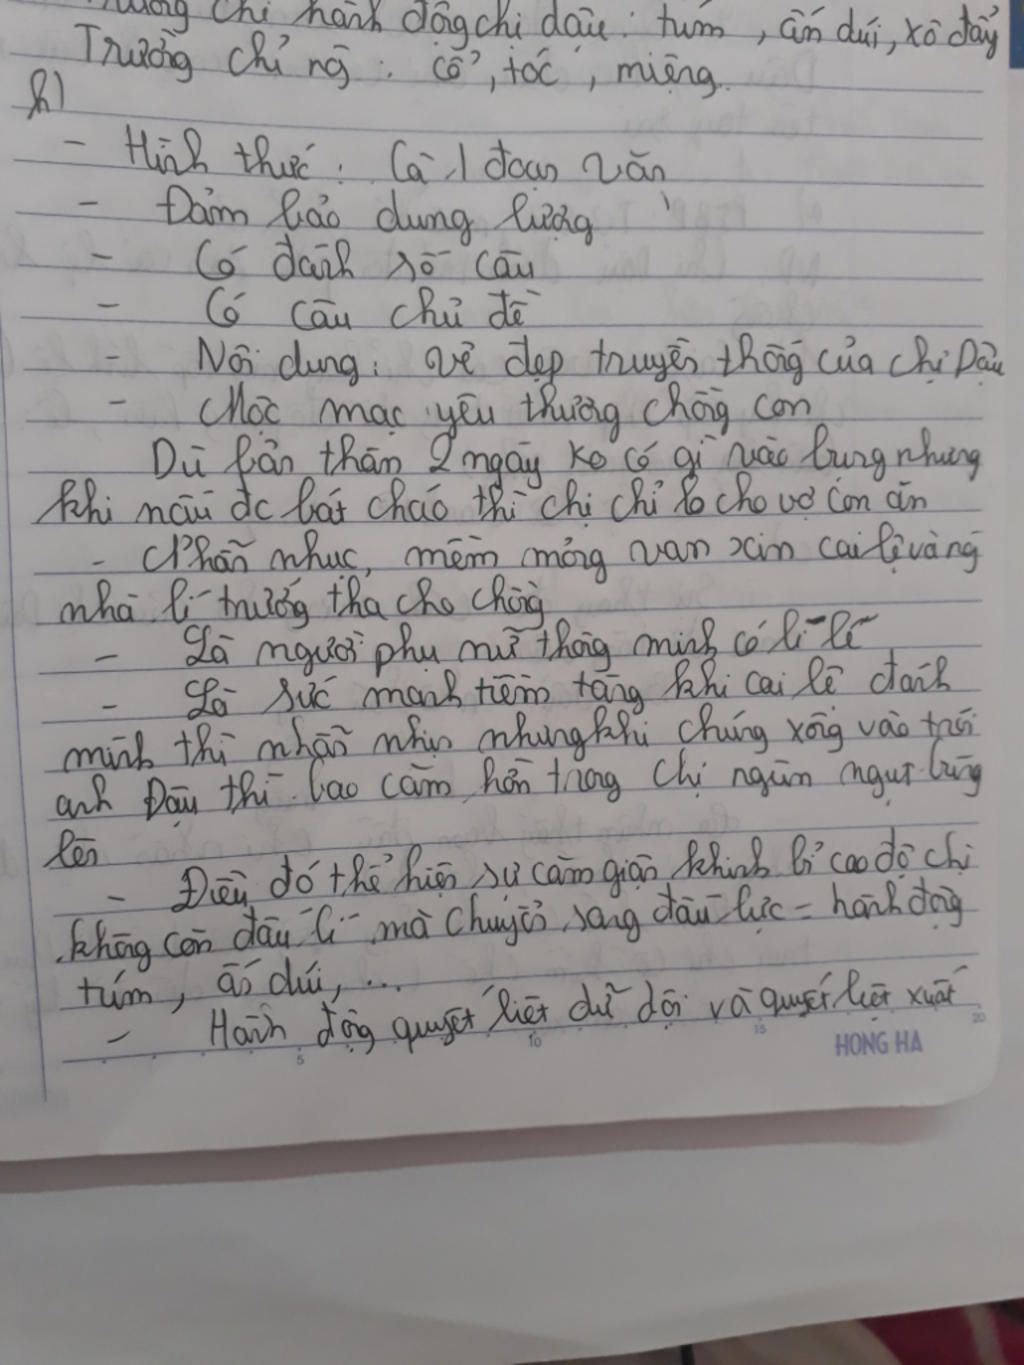 Trường chỉ hành động chị dậu: túm, ấn dúi, xô đẩy
Trường chỉ ng: cổ, tóc, miệng.
h)
- Hình thức: Là 1 đoạn văn
- Đảm bảo dung lượng
- Có đánh số câu
- Có câu chủ đề
- Nội dung: vẻ đẹp truyền thống của chị Dậu
- Mộc mạc yêu thương chồng con
Dù bản thân 2 ngày ko có gì vào bụng nhưng
khi nấu đc bát cháo thì chị chỉ lo cho vợ con ăn
- Nhẫn nhục, mềm mỏng van xin cai lệ và ng
nhà lí trưởng tha cho chồng
- Là người phụ nữ thông minh có lí lẽ
- Là sức mạnh tiềm tàng khi cai lệ đánh
mình thì nhẫn nhịn nhưng khi chúng xông vào trói
anh Dậu thì bao căm hờn trong chị ngùn ngụt bùng
lên
- Điều đó thể hiện sự căm giận khinh bỉ cao độ chị
không còn đấu lí mà chuyển sang đấu lực = hành động
túm, ấn dúi, ...
- Hành động quyết liệt dữ dội và quyết liệt xuất
5 10 15 20
HONG HA